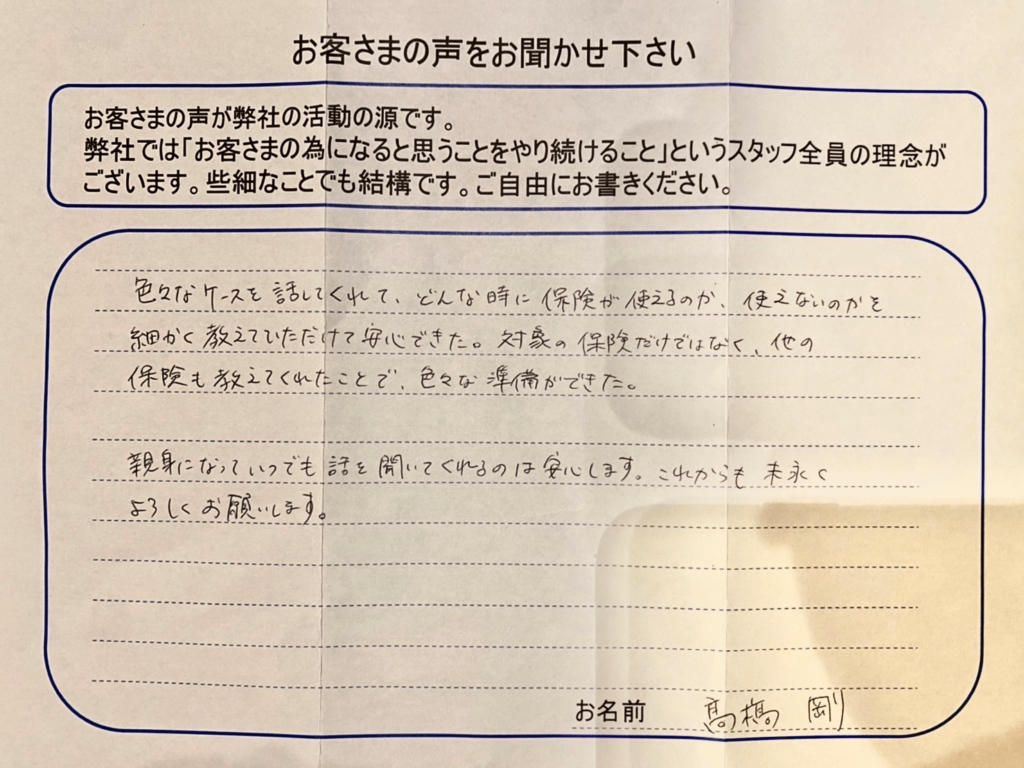 お客さまの声をお聞かせ下さい
お客さまの声が弊社の活動の源です。
弊社では「お客さまの為になると思うことをやり続けること」というスタッフ全員の理念が
ございます。些細なことでも結構です。ご自由にお書きください。
色々なケースを話してくれて、どんな時に保険が使えるのか、使えないのかを
細かく教えていただけて安心できた。対象の保険だけではなく、他の
保険も教えてくれたことで、色々な準備ができた。
親身になっていつでも話を聞いてくれるのは安心します。これからも末永く
よろしくお願いします。
お名前 髙橋 剛